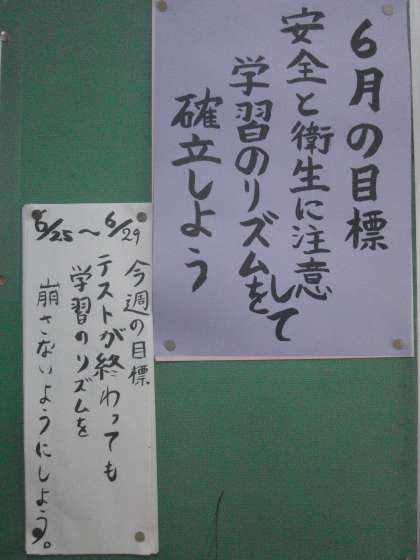 6月の目標
安全と衛生に注意して
学習のリズムを
確立しよう
6/25～6/29
今週の目標
テストが終わっても
学習のリズムを
崩さないようにしよう。